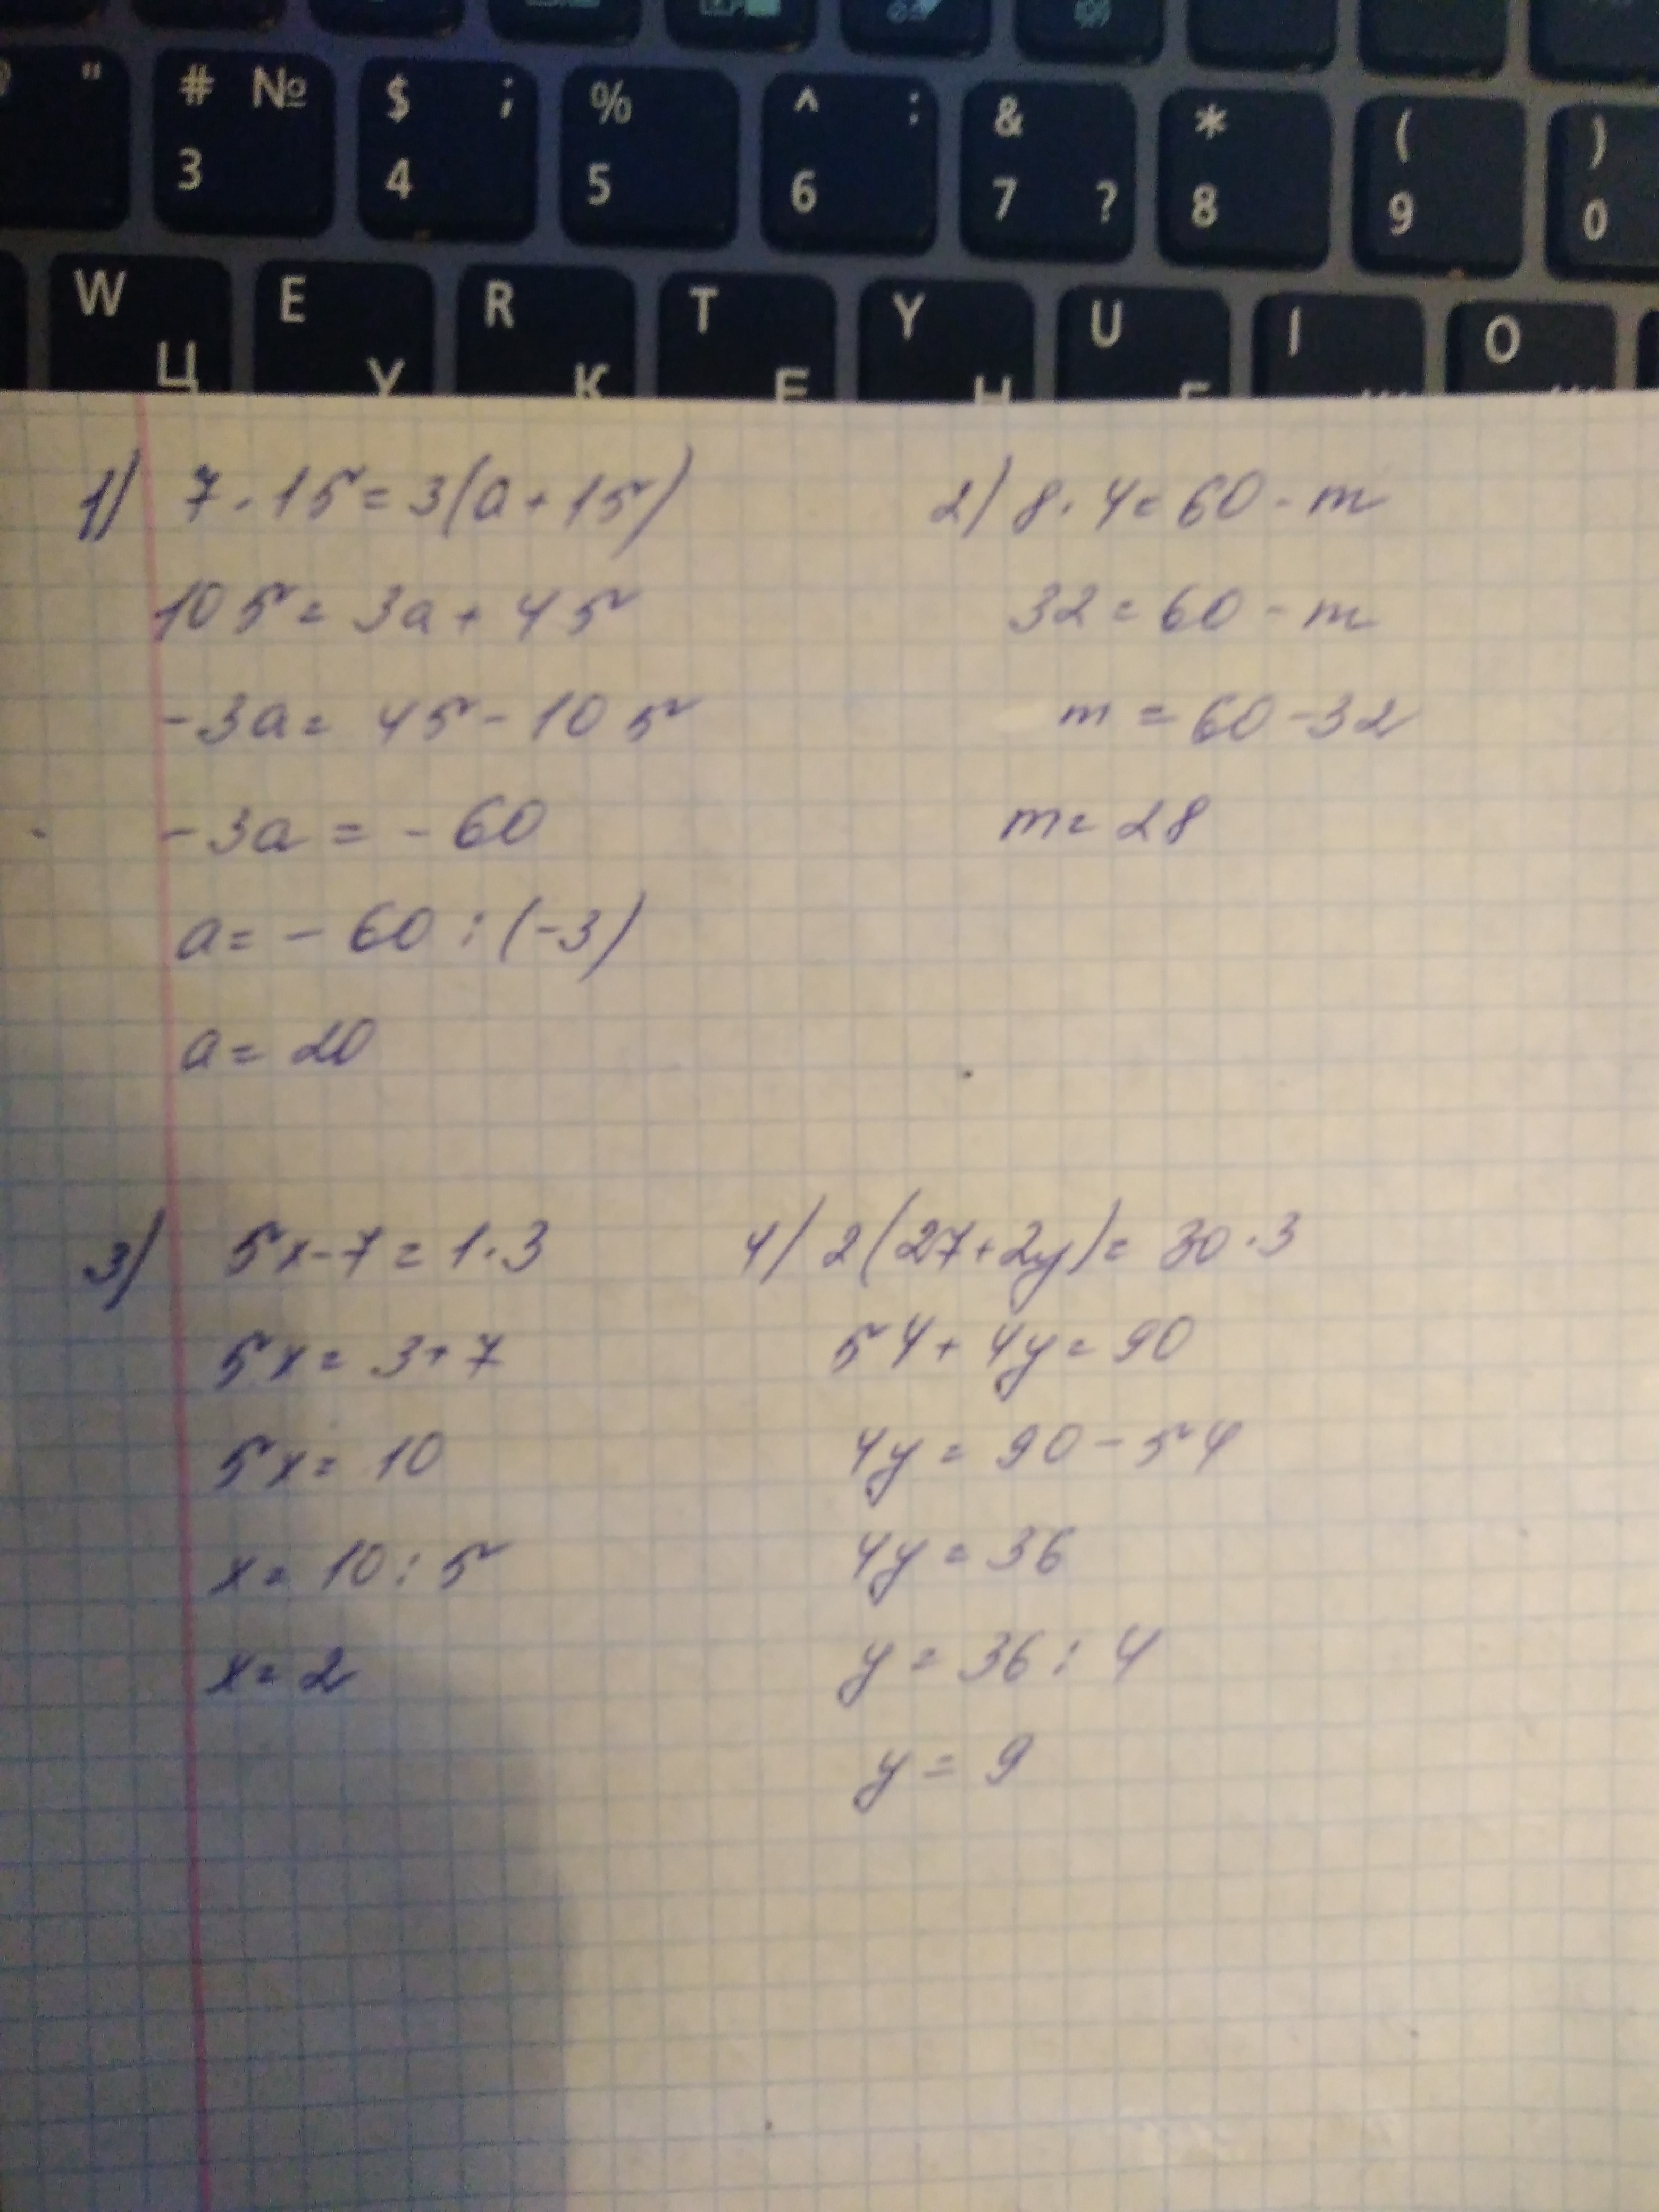 " # № $ ; % ^ : & * ( )
3 4 5 6 7 ? 8 9 0
W E R T Y U I O
Ц У К Е Н
1) 7 · 15 = 3(a + 15)
105 = 3a + 45
-3a = 45 - 105
-3a = - 60
a = - 60 : (-3)
a = 20
2) 8 · 4 = 60 - m
32 = 60 - m
m = 60 - 32
m = 28
3) 5x - 7 = 1 · 3
5x = 3 + 7
5x = 10
x = 10 : 5
x = 2
4) 2(27 + 2y) = 30 · 3
54 + 4y = 90
4y = 90 - 54
4y = 36
y = 36 : 4
y = 9